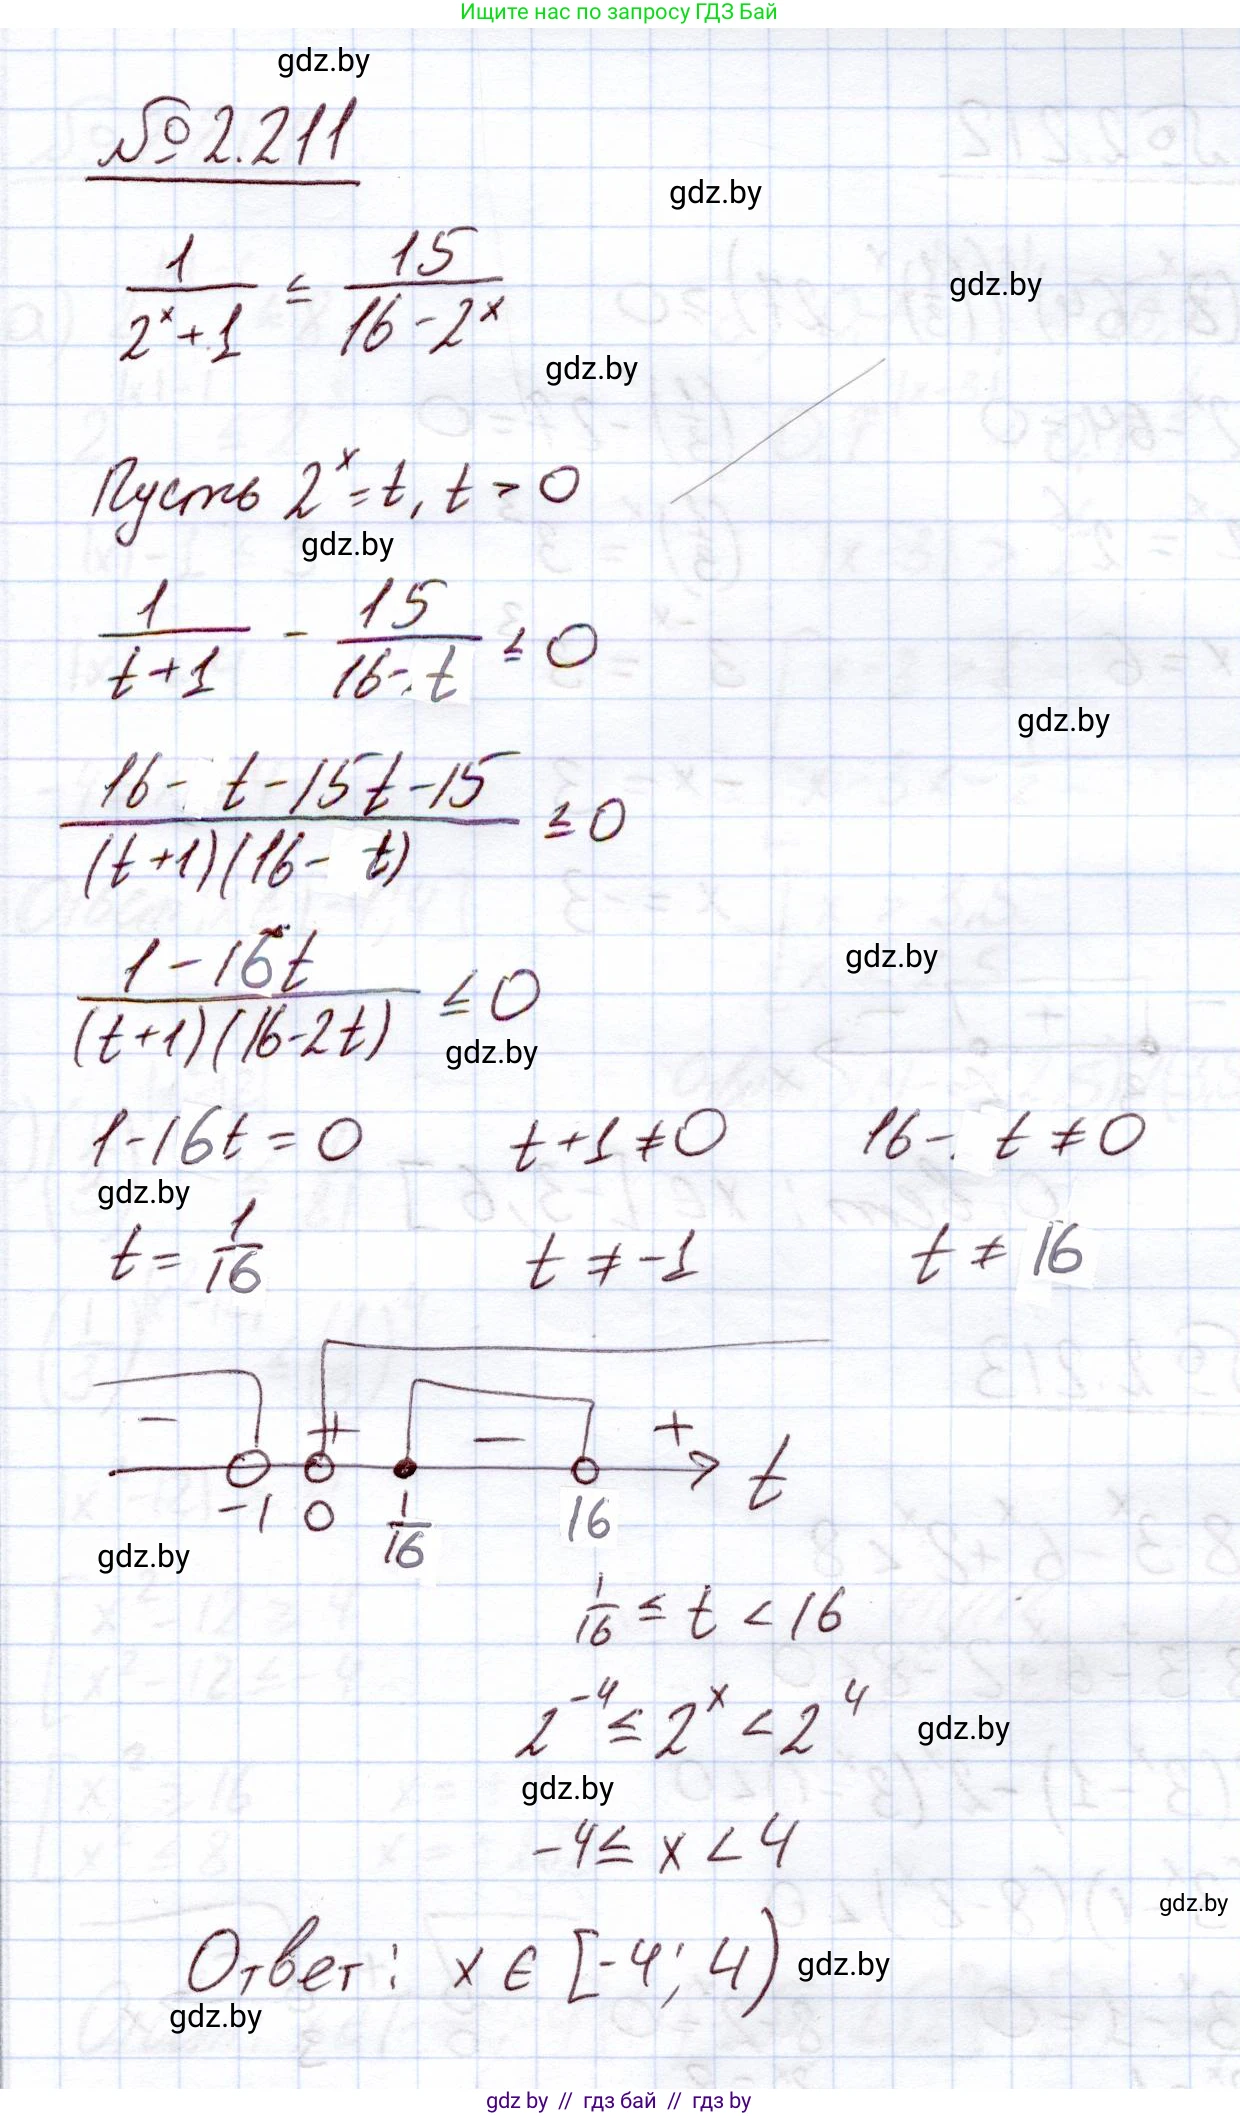 Ищите нас по запросу ГДЗ Бай
gdz.by
№ 2.211
gdz.by
1/(2^x+1) ≤ 15/(16-2^x)
gdz.by
gdz.by
Пусть 2^x = t, t > 0
gdz.by
1/(t+1) - 15/(16-t) ≤ 0
gdz.by
(16-t-15t-15)/((t+1)(16-t)) ≤ 0
(1-16t)/((t+1)(16-2t)) ≤ 0
gdz.by
gdz.by
1-16t = 0 t+1 ≠ 0 16-t ≠ 0
gdz.by
t = 1/16 t ≠ -1 t ≠ 16
- + - +
-1 0 1/16 16 t
gdz.by
1/16 ≤ t < 16
2^-4 ≤ 2^x < 2^4
gdz.by
gdz.by
-4 ≤ x < 4
gdz.by
Ответ: x ∈ [-4; 4)
gdz.by
gdz.by
gdz by // гдз бай // гдз by